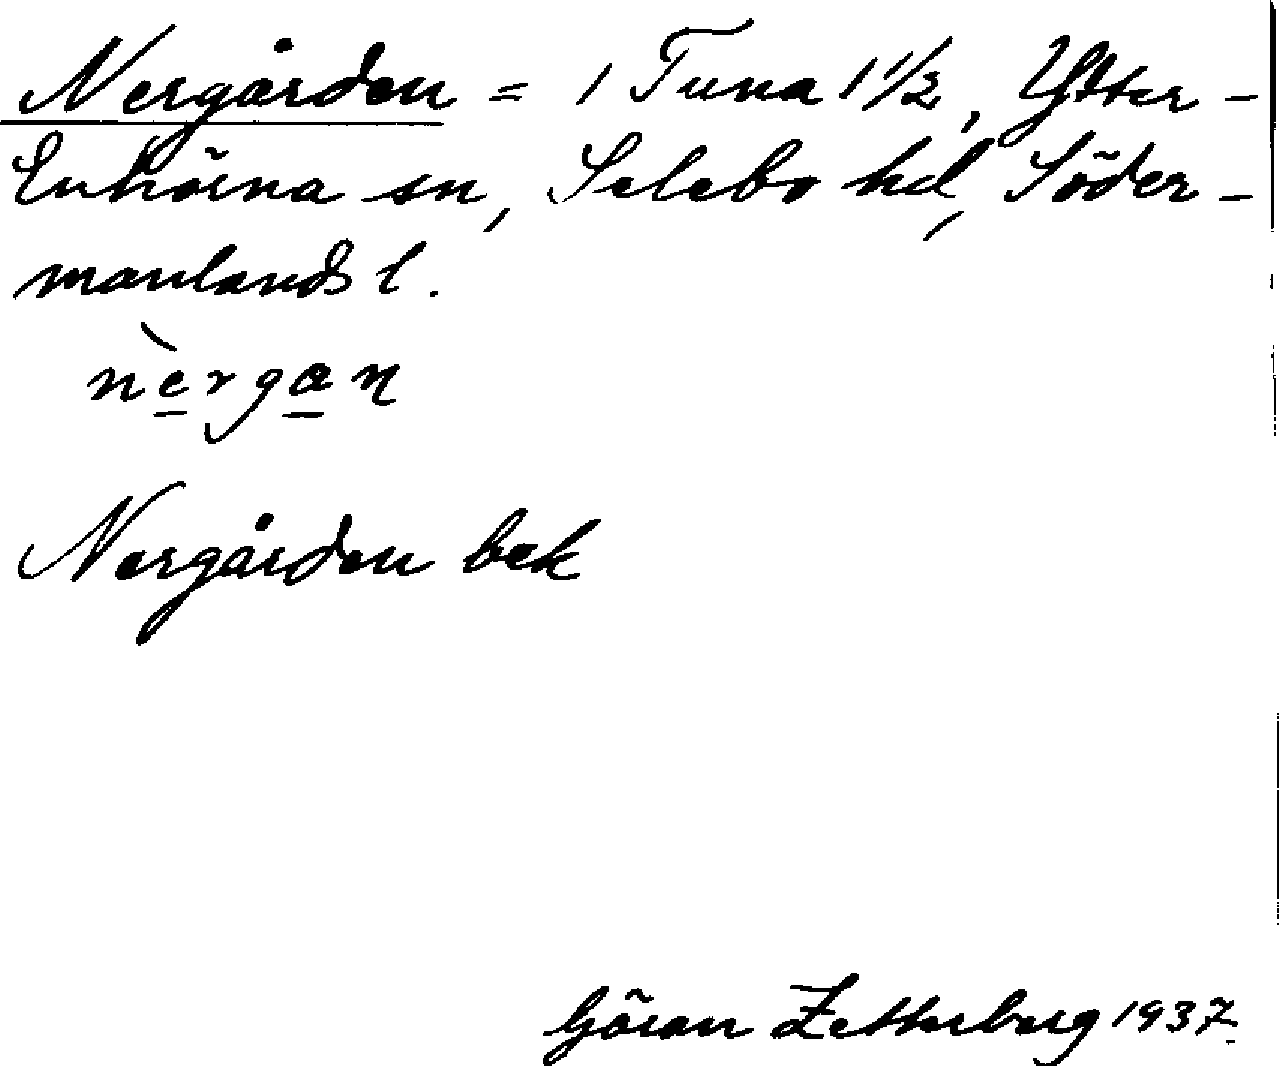 Nergården = 1 Tuna 1 1/2, Ytter-
Enhörna sn, Selebo hd, Söder-
manlands l.
nèrgan
Nergården bek
Göran Zetterberg 1937